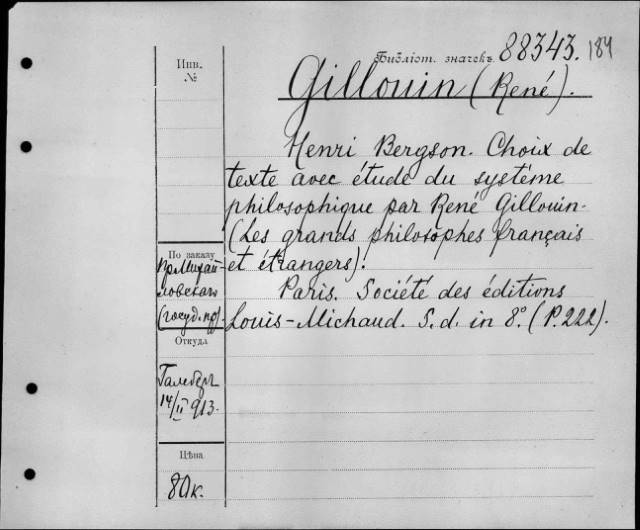 Библіот. значекъ 88343. 184
Инв.
№
Gillouin (René).
Henri Bergson. Choix de
texte avec étude du systéme
philosophique par René Gillouin.
(Les grands philosophes français
et étrangers).
Paris. Société des éditions
Louis-Michaud. S. d. in 8º. (P. 222).
По заказу
пр. Михай-
ловскаго
Откуда
14/II 913.
Цѣна
80 к.